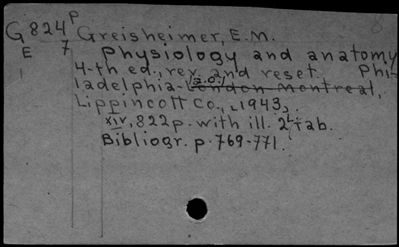 G 824 P Greisheimer, E.M.
E 7 Physiology and anatomy
4-th ed., rev. and reset. Phi-
ladelphia-[a.o.] London Montreal,
Lippincott Co., [1943].
XIV, 822 p. with ill. 2 tab.
Bibliogr. p. 769-771.